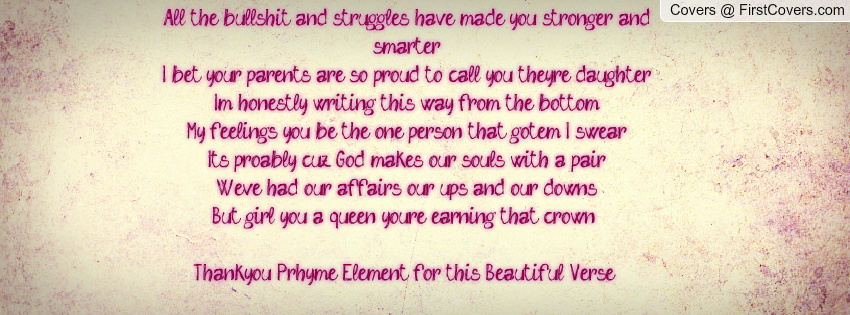 Covers @ FirstCovers.com
All the bullshit and struggles have made you stronger and
smarter
I bet your parents are so proud to call you theyre daughter
Im honestly writing this way from the bottom
My feelings you be the one person that gotem I swear
Its proably cuz God makes our souls with a pair
Weve had our affairs our ups and our downs
But girl you a queen youre earning that crown
Thankyou Prhyme Element for this Beautiful Verse